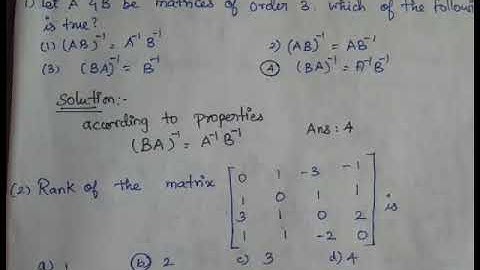 1) Let A & B be matrices of order 3. which of the
is true?
(1) (AB)⁻¹ = A⁻¹ B⁻¹ 2) (AB)⁻¹ = AB⁻¹
(3) (BA)⁻¹ = B⁻¹ (4) (BA)⁻¹ = A⁻¹B⁻¹
Solution:-
according to properties
(BA)⁻¹ = A⁻¹ B⁻¹ Ans: 4
(2) Rank of the matrix
0 1 -3 -1
1 0 1 1
3 1 0 2
1 1 -2 0
is
a) 1 (b) 2 c) 3 d) 4